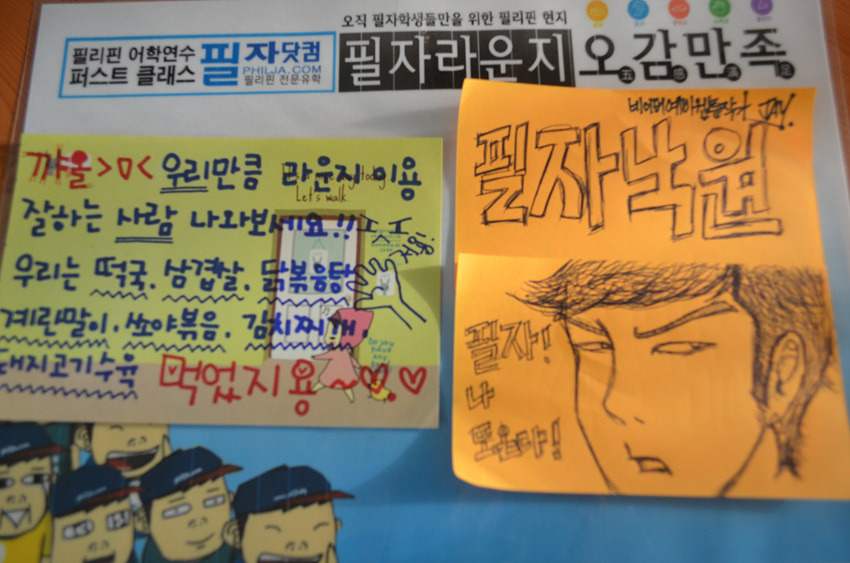 오직 필자학생들만을 위한 필리핀 현지
필리핀 어학연수
퍼스트 클래스
필자닷컴
PHILJA.COM
필리핀 전문유학
필자라운지
오감만족
五 感 滿 足
꺄울>ㅁ< 우리만큼 라운지 이용
잘하는 사람 나와보세요!!ㅈㅈ
우리는 떡국. 삼겹살. 닭볶음탕
계란말이. 쏘야볶음. 김치찌개.
돼지고기수육 먹었지용~♡♡
지용!
Let's walk
Do you
have
any
JAY.
필자낙원
필자!
나
또온다!